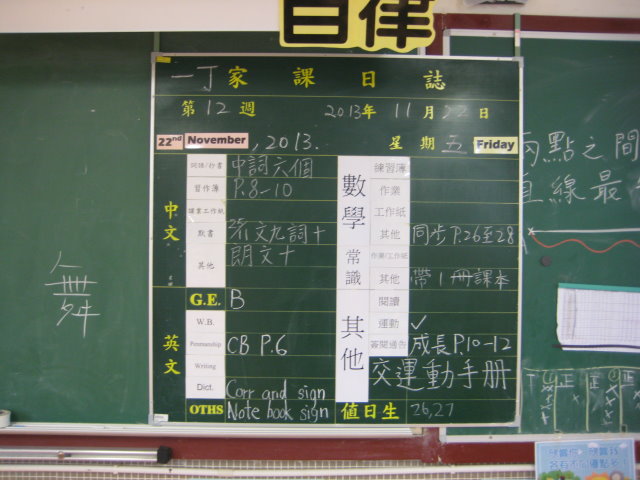 自律
一丁家課日誌
第12週 2013年11月22日
22nd November, 2013. 星期五 Friday
中文
中詞六個
習作簿 P.8-10
課業工作紙
默書 流文九詞十
其他 朗文十
G.E. B
英文
W.B.
Penmanship CB P.6
Writing
Dict. Corr and sign
OTHS Note book sign
數學
練習簿
作業
工作紙
其他 同步P.26至28
常識
作業/工作紙
其他 帶1冊課本
其他
閱讀
運動 ✓
簽閱通告 成長P.10-12
交運動手冊
值日生 26,27
舞
兩點之間
直線最